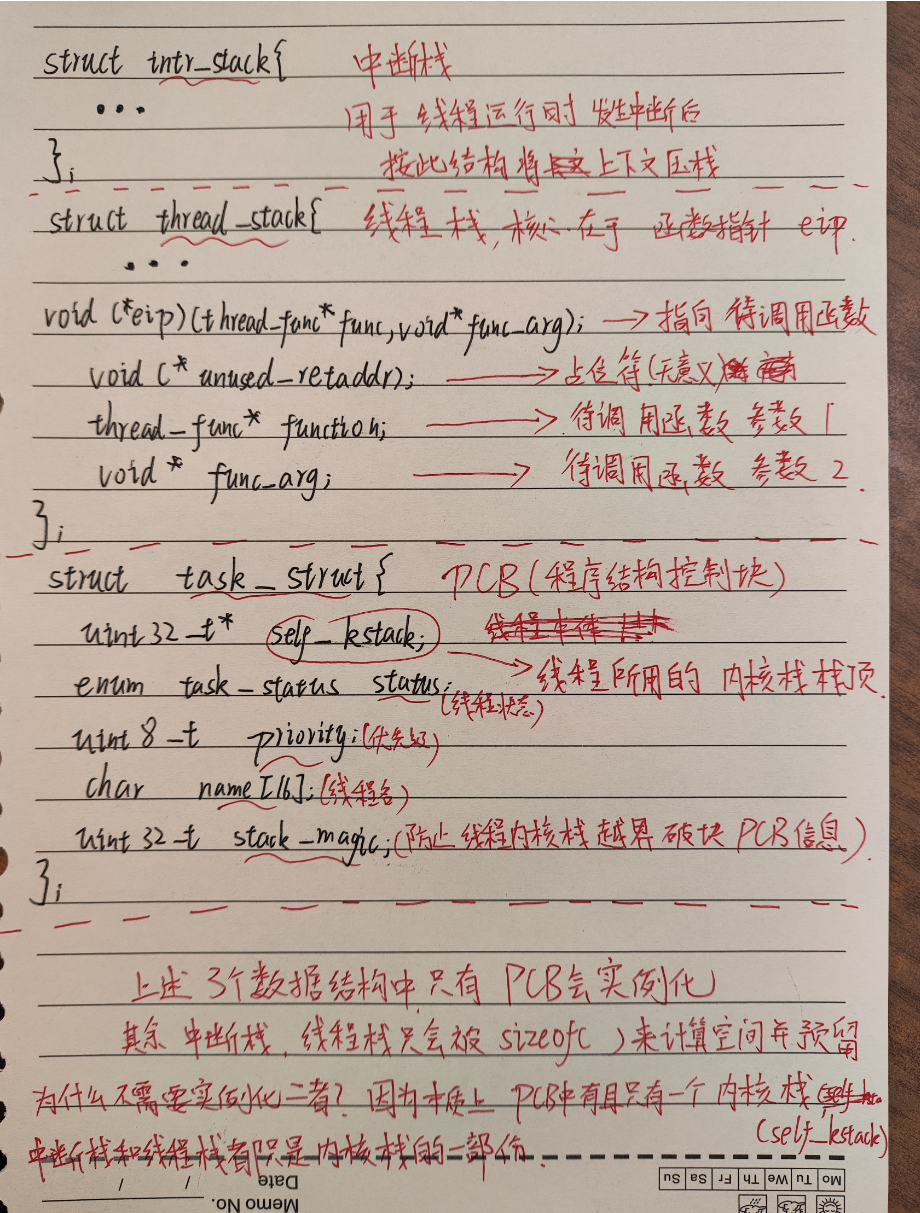 struct intr_stack{ 中断栈
... 用于线程运行时 发生中断后
}; 按此结构将上下文压栈
struct thread_stack{ 线程栈,核心在于 函数指针 eip.
...
void (*eip)(thread_func* func,void* func_arg); → 指向 待调用函数
void (* unused_retaddr); → 占位符(无意义)
thread_func* function; → 待调用函数 参数1
void* func_arg; → 待调用函数 参数2.
};
struct task_struct{ PCB(程序结构控制块)
uint32_t* self_kstack;
→ 线程所用的 内核栈栈顶.
enum task_status status;
(线程状态)
uint8_t priority;(优先级)
char name[16];(线程名)
uint32_t stack_magic;(防止线程内核栈越界 破块 PCB信息).
};
上述3个数据结构中只有 PCB会实例化
其余 中断栈,线程栈只会被 sizeof( )来计算空间并预留
为什么不需要实例化二者? 因为本质上 PCB中有且只有一个 内核栈
(self_kstack)
中断栈和线程栈都只是内核栈的一部份.
Mo Tu We Th Fr Sa Su
Date / /
Memo No.